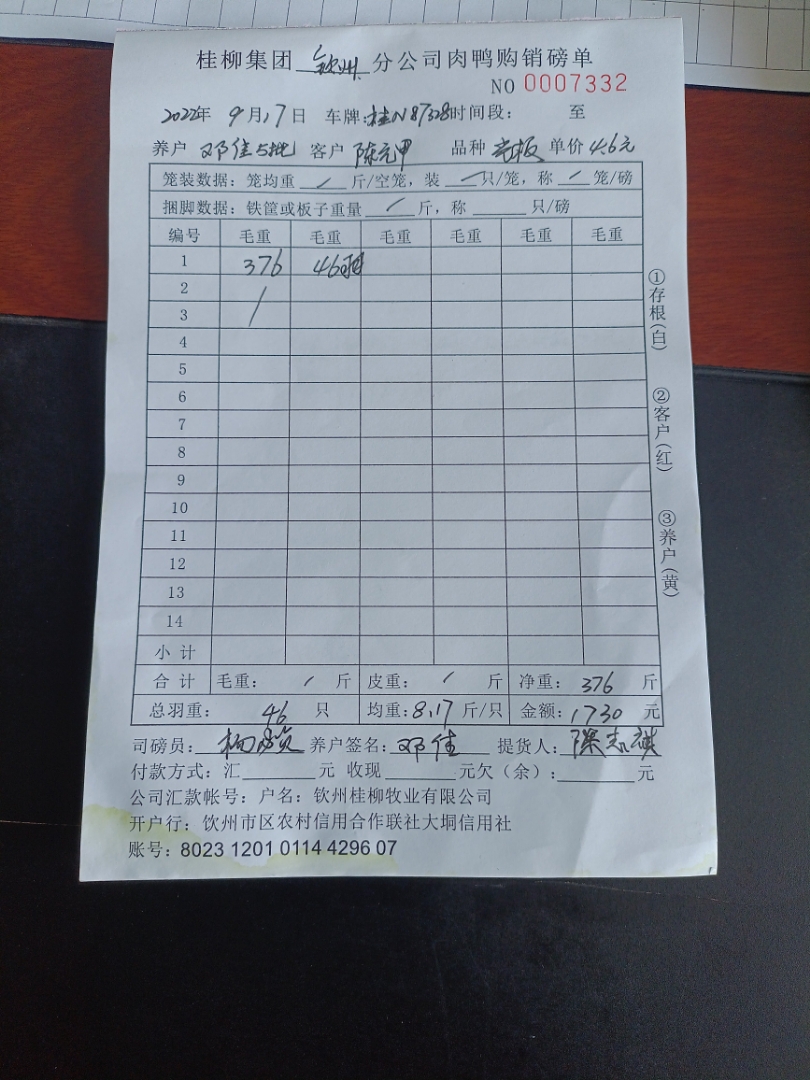 桂柳集团 钦州 分公司肉鸭购销磅单
NO 0007332
2022年 9月17日 车牌:桂N87328时间段: 至
养户 邓佳5批 客户 陈元甲 品种 毛板 单价 4.6元
笼装数据:笼均重 / 斤/空笼,装 / 只/笼,称 / 笼/磅
捆脚数据:铁筐或板子重量 / 斤,称 只/磅
编号 毛重 毛重 毛重 毛重 毛重 毛重
1 376 46羽
2
3 /
4
5
6
7
8
9
10
11
12
13
14
小计
合计 毛重: / 斤 皮重: / 斤 净重: 376 斤
总羽重: 46 只 均重:8.17斤/只 金额:1730元
司磅员: 养户签名:邓佳 提货人:陈志祺
付款方式:汇 元 收现 元欠(余): 元
公司汇款帐号:户名:钦州桂柳牧业有限公司
开户行:饮州市区农村信用合作联社大垌信用社
账号:8023 1201 0114 4296 07
①存根(白)
②客户(红)
③养户(黄)